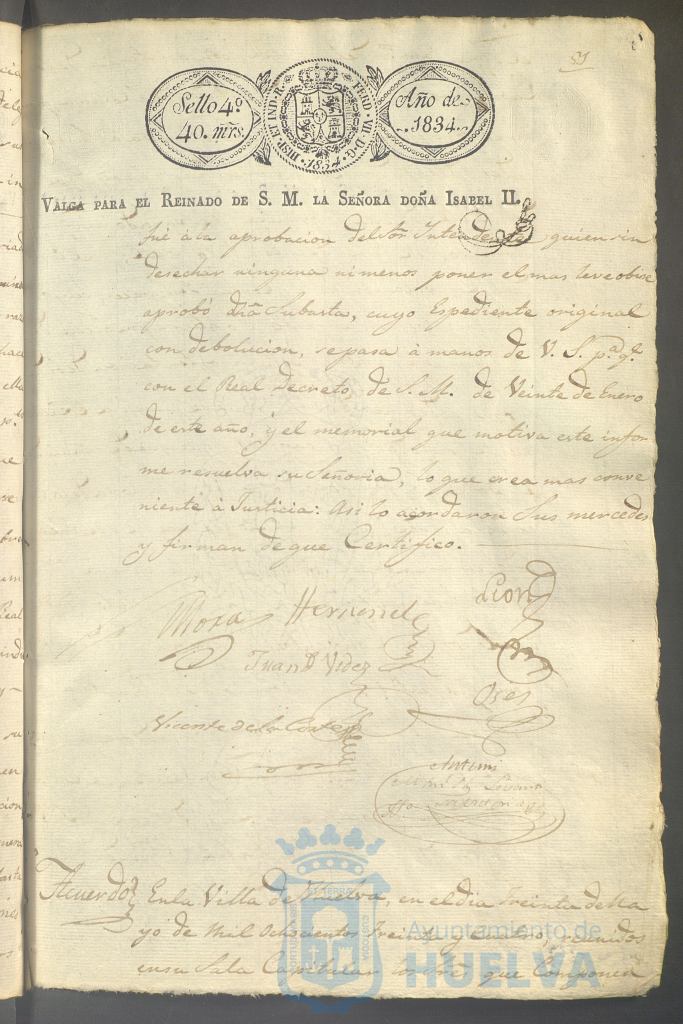 51
Sello 4º
40. mrs.
HISP. ET IND. R. FERD. VII. D. G.
1834
Año de
1834.
VALGA PARA EL REINADO DE S. M. LA SEÑORA DOÑA ISABEL II.
fué á la aprobacion del Sor. Intendente, quien sin
desechar ninguna ni menos poner el mas leve obice
aprobó dha Subasta, cuyo Espediente original
con debolucion, se pasa à manos de V. S. pa. q.e
con el Real Decreto de S. M. de Veinte de Enero
de este año, y el memorial que motiva este infor
me resuelva su Señoria, lo que crea mas conve
niente à Justicia: Asi lo acordaron Sus mercedes
y firman de que Certifico.
Mora Hernandez Leon
Juan
Vicente de la Corte
Antemi
Acuerdo
En la Villa de Huelva, en el dia Treinta de Ma
yo de Mil Ochocientos Treinta y Cuatro, reunidos
en su Sala Capitular los Sres que Componen
Ayuntamiento de
HUELVA